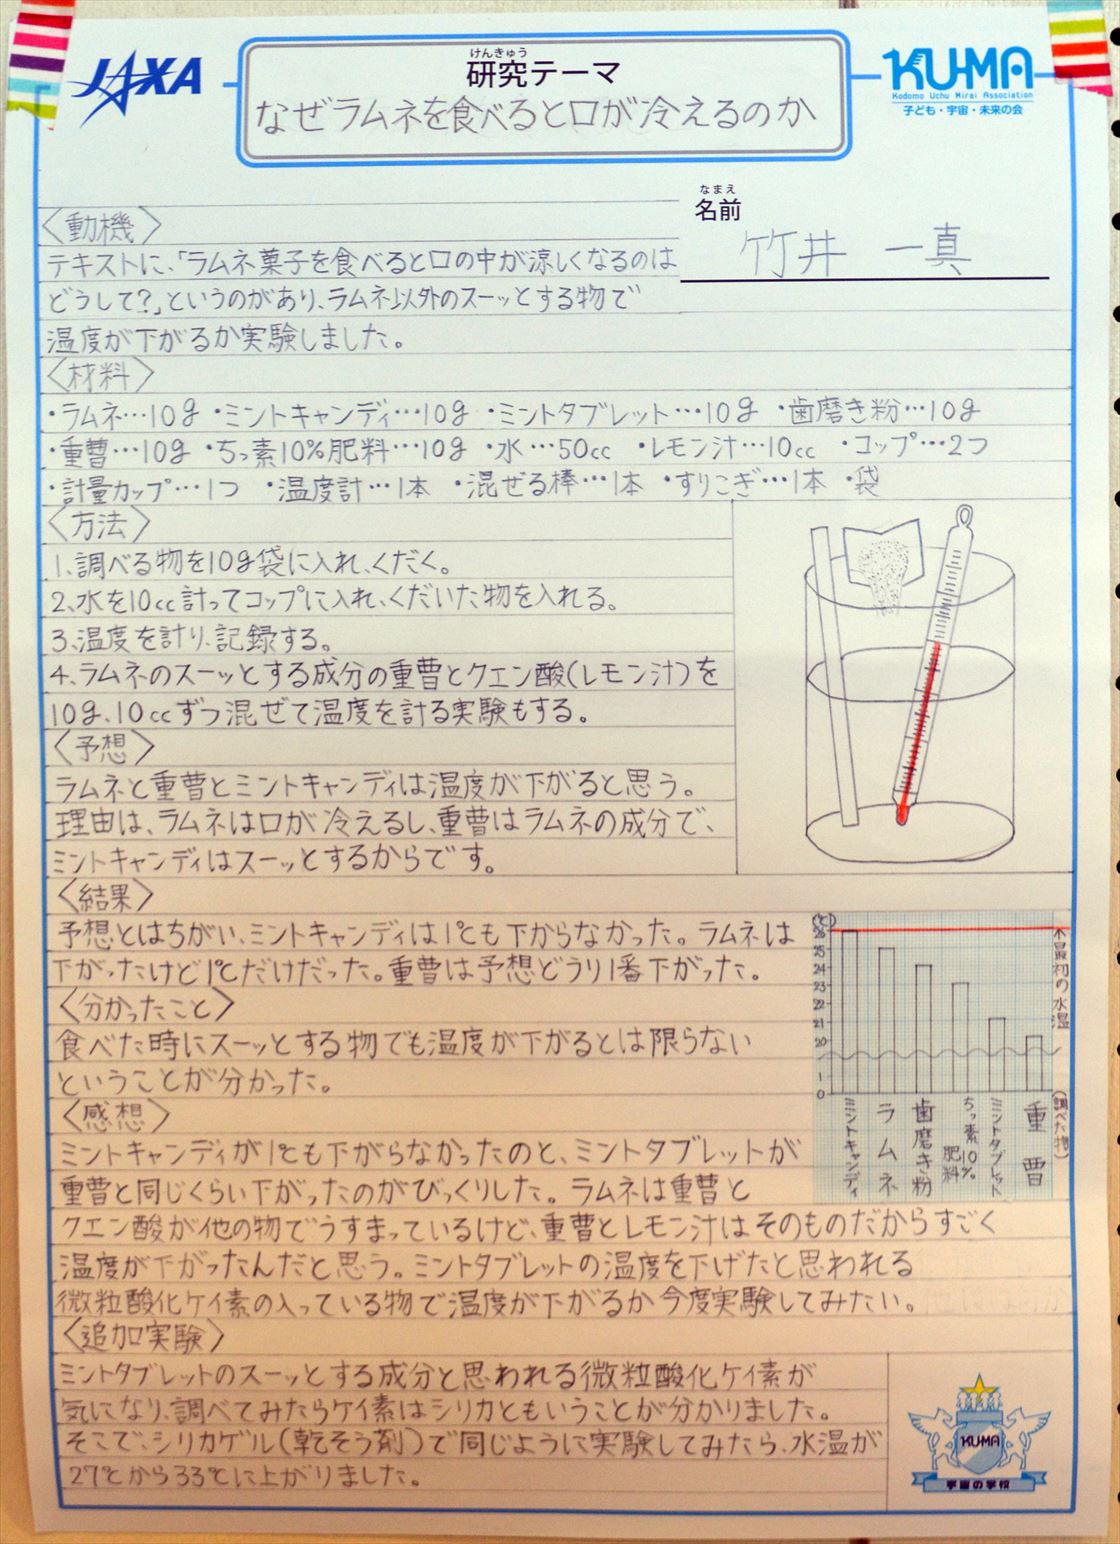 JAXA
けんきゅう
研究テーマ
なぜラムネを食べると口が冷えるのか
KU-MA
Kodomo Uchu Mirai Association
子ども・宇宙・未来の会
なまえ
名前
竹井 一真
〈動機〉
テキストに、「ラムネ菓子を食べると口の中が涼しくなるのは
どうして?」というのがあり、ラムネ以外のスーッとする物で
温度が下がるか実験しました。
〈材料〉
・ラムネ…10g ・ミントキャンディ…10g ・ミントタブレット…10g ・歯磨き粉…10g
・重曹…10g ・ちっ素10%肥料…10g ・水…50cc ・レモン汁…10cc ・コップ…2つ
・計量カップ…1つ ・温度計…1本 ・混ぜる棒…1本 ・すりこぎ…1本 ・袋
〈方法〉
1、調べる物を10g袋に入れ、くだく。
2、水を10cc計ってコップに入れ、くだいた物を入れる。
3、温度を計り、記録する。
4、ラムネのスーッとする成分の重曹とクエン酸(レモン汁)を
10g、10ccずつ混ぜて温度を計る実験もする。
〈予想〉
ラムネと重曹とミントキャンディは温度が下がると思う。
理由は、ラムネは口が冷えるし、重曹はラムネの成分で、
ミントキャンディはスーッとするからです。
〈結果〉
予想とはちがい、ミントキャンディは1℃も下がらなかった。ラムネは
下がったけど1℃だけだった。重曹は予想どうり1番下がった。
〈分かったこと〉
食べた時にスーッとする物でも温度が下がるとは限らない
ということが分かった。
(℃)
26
25
24
23
22
21
20
1
0
最初の水温
ミントキャンディ
ラムネ
歯磨き粉
ちっ素10%肥料
ミントタブレット
重曹
(調べた物)
〈感想〉
ミントキャンディが1℃も下がらなかったのと、ミントタブレットが
重曹と同じくらい下がったのがびっくりした。ラムネは重曹と
クエン酸が他の物でうすまっているけど、重曹とレモン汁はそのものだからすごく
温度が下がったんだと思う。ミントタブレットの温度を下げたと思われる
微粒酸化ケイ素の入っている物で温度が下がるか今度実験してみたい。
〈追加実験〉
ミントタブレットのスーッとする成分と思われる微粒酸化ケイ素が
気になり、調べてみたらケイ素はシリカともいうことが分かりました。
そこで、シリカゲル(乾そう剤)で同じように実験してみたら、水温が
27℃から33℃に上がりました。
KU-MA
宇宙の学校